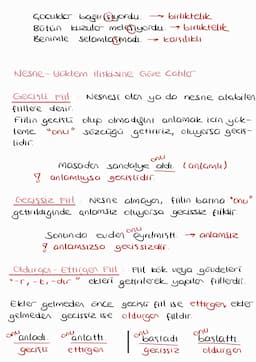 Çocuklar bağırışıyordu. → birliktelik
Bütün kuzular meleşiyordu. → birliktelik
Benimle selamlaşmadı. → karşılıklı
Nesne-Yüklem İlişkisine Göre Çatılar
Geçişli Fiil Nesnesi olan ya da nesne alabilen
fiillere denir.
Fiilin geçişli olup olmadığını anlamak için yük-
leme "onu" sözcüğü getiririz, oluyorsa geçiş-
lidir.
onu
Masadan sandalye aldı. (anlamlı)
anlamlıysa geçişlidir.
Geçişsiz Fiil Nesne almayan, fiilin başına "onu"
getirildiğinde anlamsız oluyorsa geçişsiz fiildir.
onu
Sonunda evden ayrılmıştı. → anlamsız
anlamsızsa geçişsizdir.
Oldurgan-Ettirgen Fiil Fiil kök veya gövdeleri
"-r, -t, -dır" ekleri getirilerek yapılan fiillerdir.
Ekler gelmeden önce geçişli fiil ise ettirgen, ekler
gelmeden geçişsiz ise oldurgan fiildir.
onu anladı onu anlattı onu başladı onu başlattı
geçişli ettirgen geçişsiz oldurgan